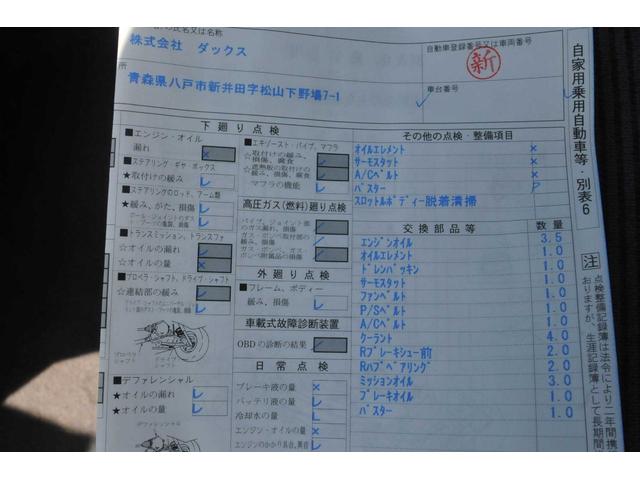 の氏名又は名称
株式会社 ダックス
所
青森県八戸市新井田字松山下野場7-1
自動車登録番号又は車両番号
新
車台番号
自家用乗用自動車等・別表6
下廻り点検
■エンジン・オイル
漏れ
■ステアリング・ギヤ・ボックス
★取付けの緩み
■ステアリングのロッド、アーム類
★緩み、がた、損傷
■トランスミッション、トランスファ
☆オイルの漏れ
☆オイルの量
■プロペラ・シャフト、ドライブ・シャフト
☆連結部の緩み
プロペラ
シャフト
ドライブ
シャフト
■デファレンシャル
★オイルの漏れ
★オイルの量
デファレンシャル
■エキゾースト・パイプ、マフラ
☆取付けの緩み、
損傷、腐食
☆遮熱板の取付けの緩み、損傷、腐食
マフラの機能
高圧ガス(燃料)廻り点検
パイプ、ジョイント部
のガス漏れ、損傷
ガス・ボンベ取付部の
緩み、損傷
ガス・ボンベ、ガス・ボンベ附属品の損傷
外廻り点検
■フレーム、ボディー
緩み、損傷
車載式故障診断装置
OBDの診断の結果
日常点検
ブレーキ液の量 ×
バッテリ液の量
冷却水の量
エンジン・オイルの量 ×
エンジンのかかり具合、異音
その他の点検・整備項目
オイルエレメント ×
サーモスタット ×
A/Cベルト ×
バスター P
スロットルボディー脱着清掃
交換部品等 数量
エンジンオイル 3.5
オイルエレメント 1.0
ドレンパッキン 1.0
サーモスタット 1.0
ファンベルト 1.0
P/Sベルト 1.0
A/Cベルト 1.0
クーラント 4.0
Rブレーキシュー前 2.0
Rハブベアリング 2.0
ミッションオイル 3.0
ブレーキオイル 1.0
バスター 1.0
注
点検整備記録簿は法令により二年間携
おりますが、生涯記録簿として長期間